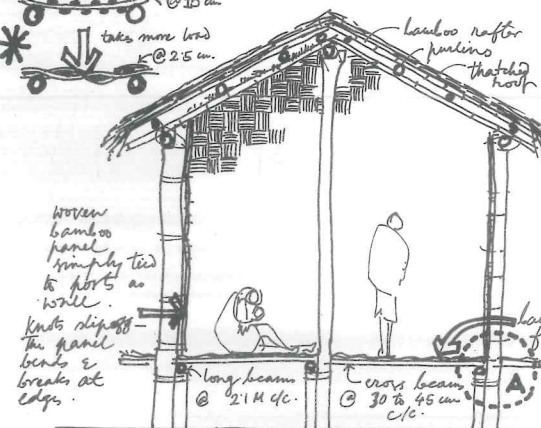 @ 15 cm.
takes more load
@ 25 cm.
bamboo rafter
purlins
thatched
roof
woven
bamboo
panel
simply tied
to posts as
wall.
knots slip off -
the panel
bends &
breaks at
edges.
long beams
@ 2.1 M c/c.
cross beams
@ 30 to 45 cm
c/c.
A